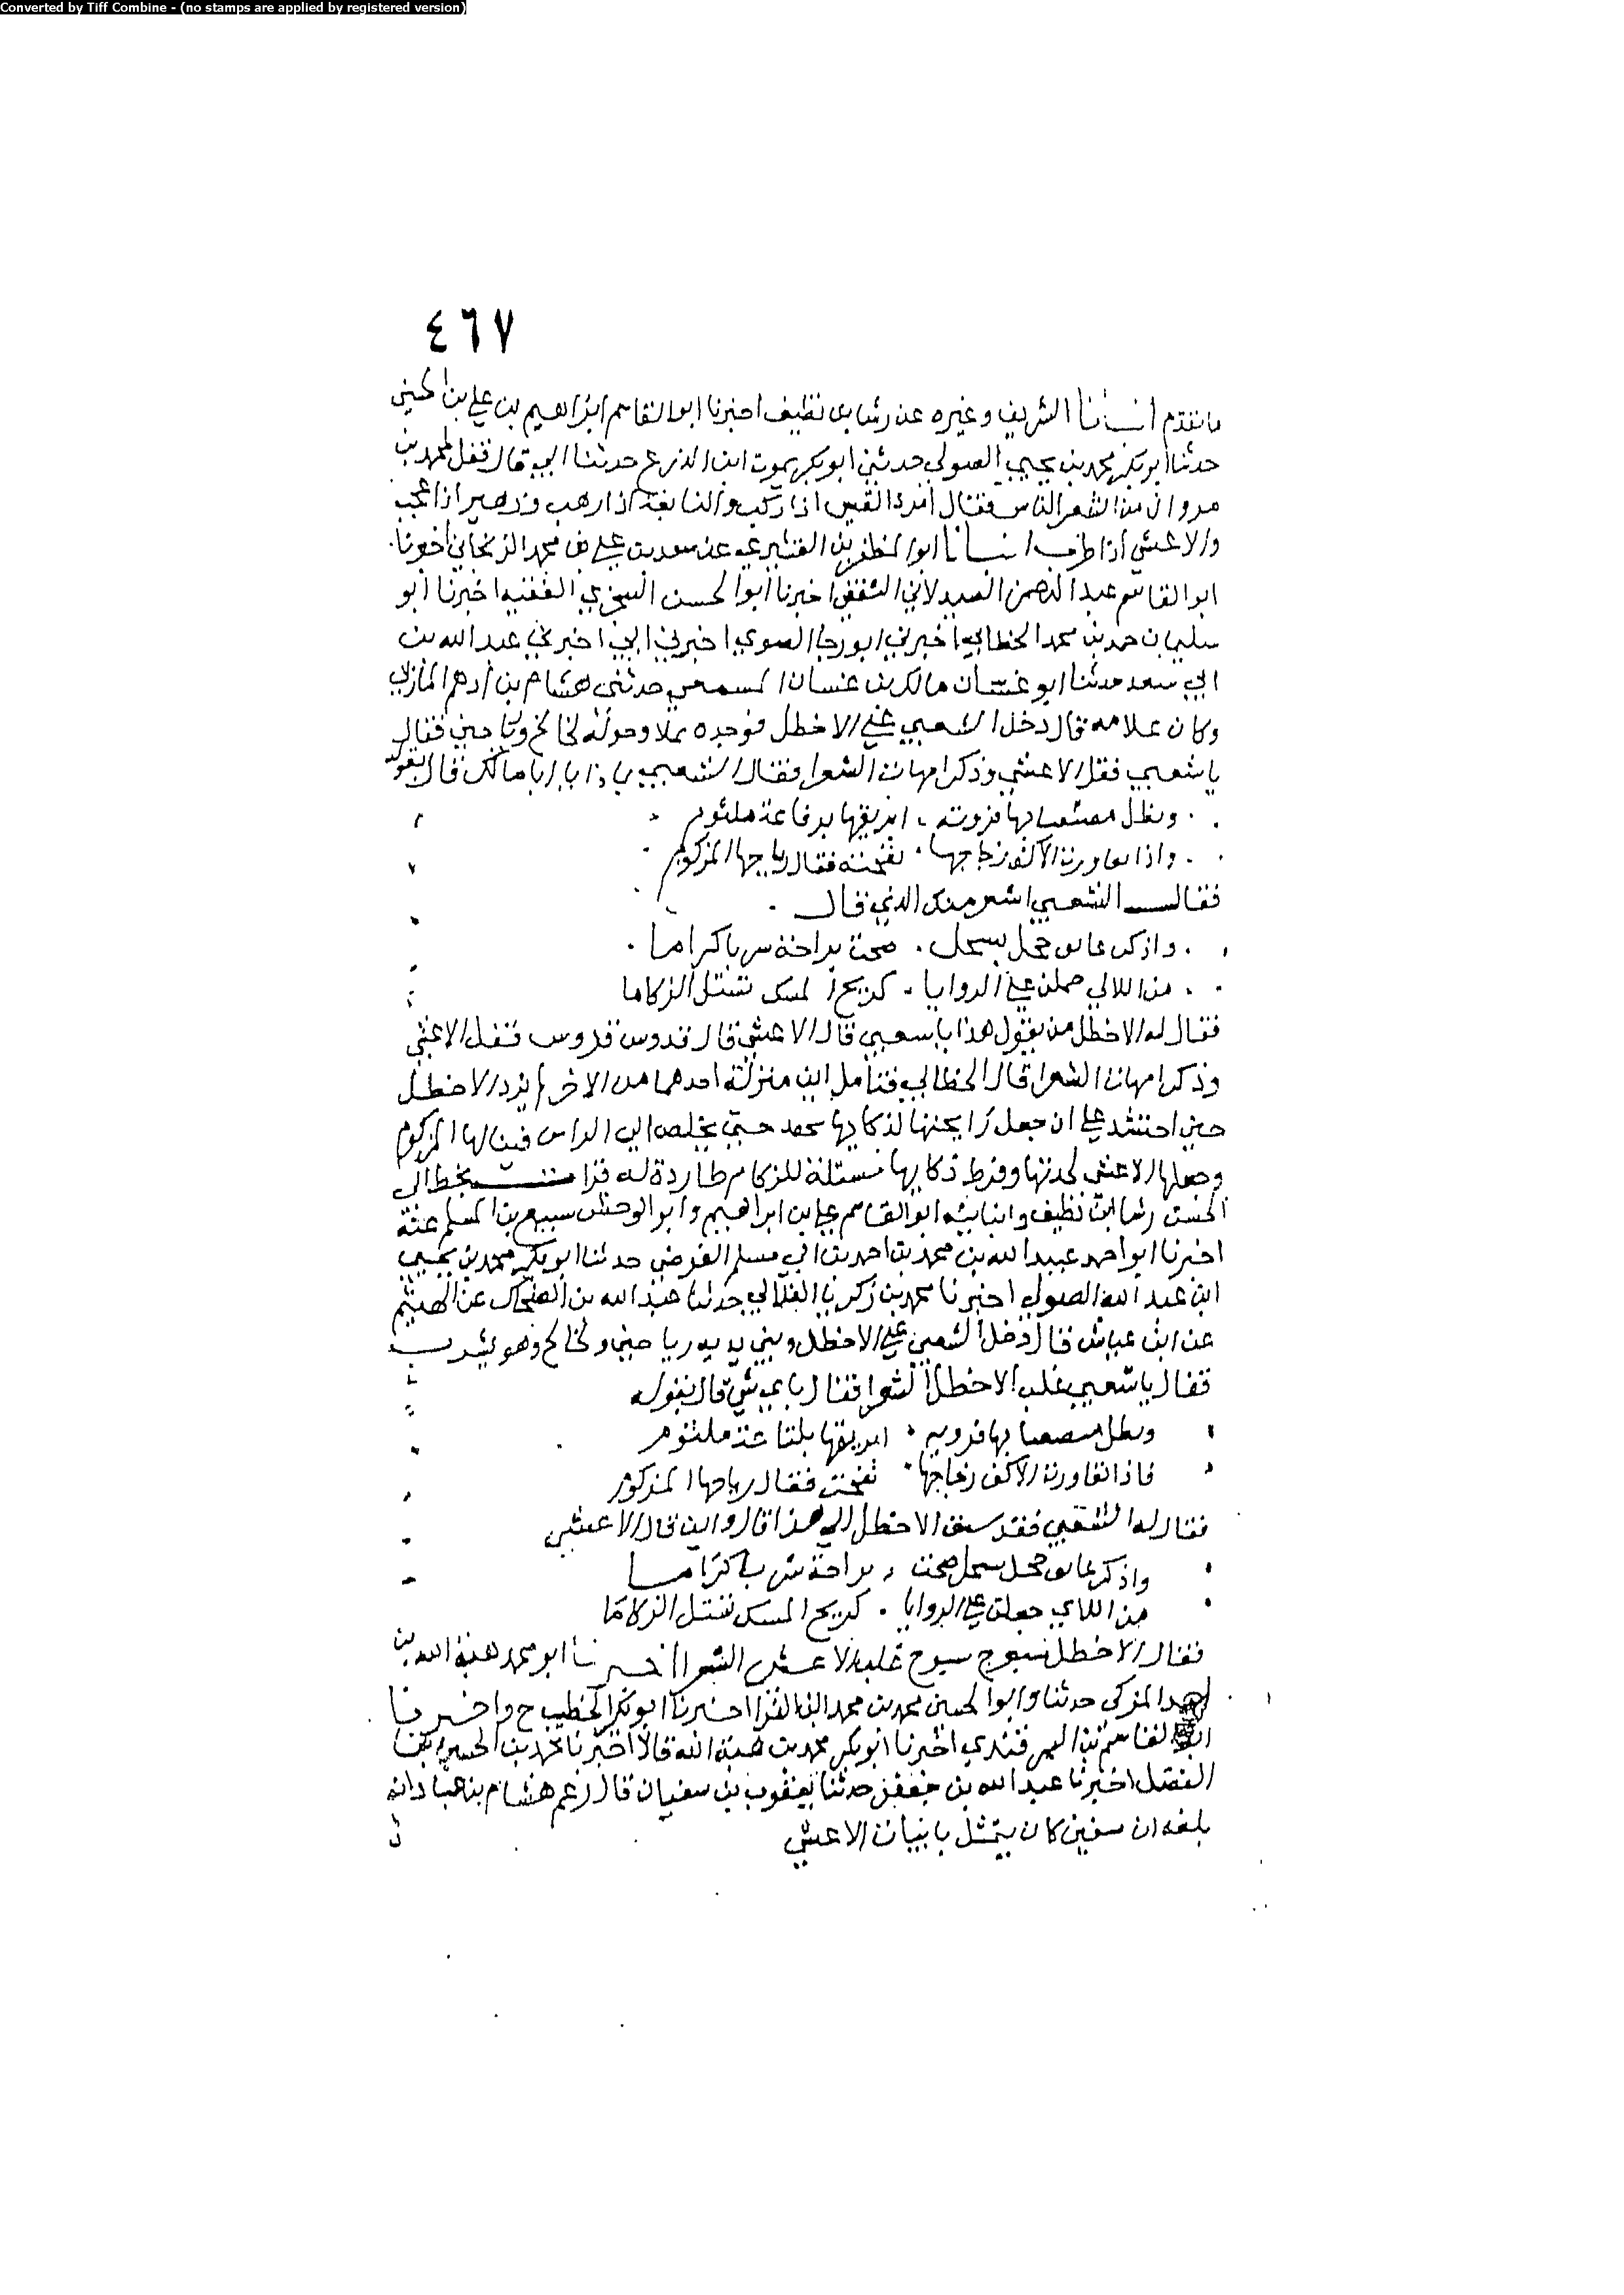 Converted by Tiff Combine - (no stamps are applied by registered version)
٤٦٧
ما تقدم انبأنا الشريف وغيره عن رشا بن نظيف اخبرنا ابو القاسم ابراهيم بن علي بن الحسين
حدثنا ابو بكر محمد بن يحيى الصولي حدثني ابو بكر يموت ابن المزرع حدثنا ابي قال قيل لمحمد بن
مروان من اشعر الناس فقال امرؤ القيس اذا ركب والنابغة اذا رهب وزهير اذا
والاعشى اذا طرب انبانا ابو المظفر بن القشيري عن سعد بن علي بن محمد الزنجاني اخبرنا
ابو القاسم عبد الرحمن الصيدلاني الثقفي اخبرنا ابو الحسن السجزي الفقيه اخبرنا ابو
سليمان حمد بن محمد الخطابي اخبرني ابو رجا الغنوي اخبرني ابي اخبرني عبد الله بن
ابي سعد حدثنا ابو غسان مالك بن غسان المسمعي حدثني هشام بن ادهم المازني
وكان علامة قال دخل الشعبي على الاخطل فوجده ثملا وحوله لخالخ ورياحين فقال
يا شعبي فعل الاعشى وذكر امهات الشعرا فقال الشعبي بماذا يا ابا مالك قال بقوله
وتظل بها قروية ابريقها برقاعه ملثوم
واذا تعاورت الاكف زجاجها نفحت فقال رياحها المزكوم
فقال الشعبي اشعر منك الذي قال
واذكن عاتق جحل سبحل صبحت براحه شربا كراما
من اللاتي حملن على الروايا كريح المسك تستل الزكاما
فقال له الاخطل من يقول هذا يا شعبي قال الاعشى قال قدوس قدوس فعل الاعشى
وذكر امهات الشعرا قال الخطابي فتامل اين منزلة احدهما من الاخر لم يزد الاخطل
حين احتشد على ان جعل رايحتها لذكايها حتى يخلص الى الراس فينالها المزكوم
وجعلها الاعشى لحدتها وفرط ذكايها مستلة للزكام طاردة له قرات بخط ابي
الحسن رشا ابن نظيف وانبانيه ابو القاسم علي بن ابراهيم وابو الوحش سبيع بن المسلم عنه
اخبرنا ابو احمد عبيد الله بن محمد بن احمد بن ابي مسلم الفرضي حدثنا ابو بكر محمد بن يحيى
ابن عبد الله الصولي اخبرنا محمد بن زكريا الغلابي حدثنا عبد الله بن الضحاك عن الهيثم
عن ابن عياش قال دخل الشعبي على الاخطل وبين يديه رياحين ولخالخ وهو يشرب
فقال يا شعبي غلب الاخطل الشعرا فقال باي شي قال بقوله
وتظل بها قرويه ابريقها ملثوم
فاذا تعاورت الاكف زجاجها نفحت فقال رياحها المزكوم
فقال له الشعبي فقد سبق الاخطل الى هذا قال واين قال الاعشى
واذكن عاتق جحل سبحل صبحت براحه شربا كراما
من اللاي جعلن على الروايا كريح المسك تستل الزكاما
فقال الاخطل سبوح سبوح غلب الاعشى الشعرا اخبرنا ابو محمد هبة الله بن
احمد المزكي حدثنا وابو الحسن محمد بن محمد ابن الفرا اخبرنا ابو بكر الخطيب ح واخبرنا
ابو القاسم بن السمرقندي اخبرنا ابو بكر محمد بن هبة الله قالا اخبرنا محمد بن الحسين بن
الفضل اخبرنا عبد الله بن جعفر حدثنا يعقوب بن سفيان قال زعم هشام بن عباد انه
بلغه ان سفين كان يتمثل بابيات الاعشى